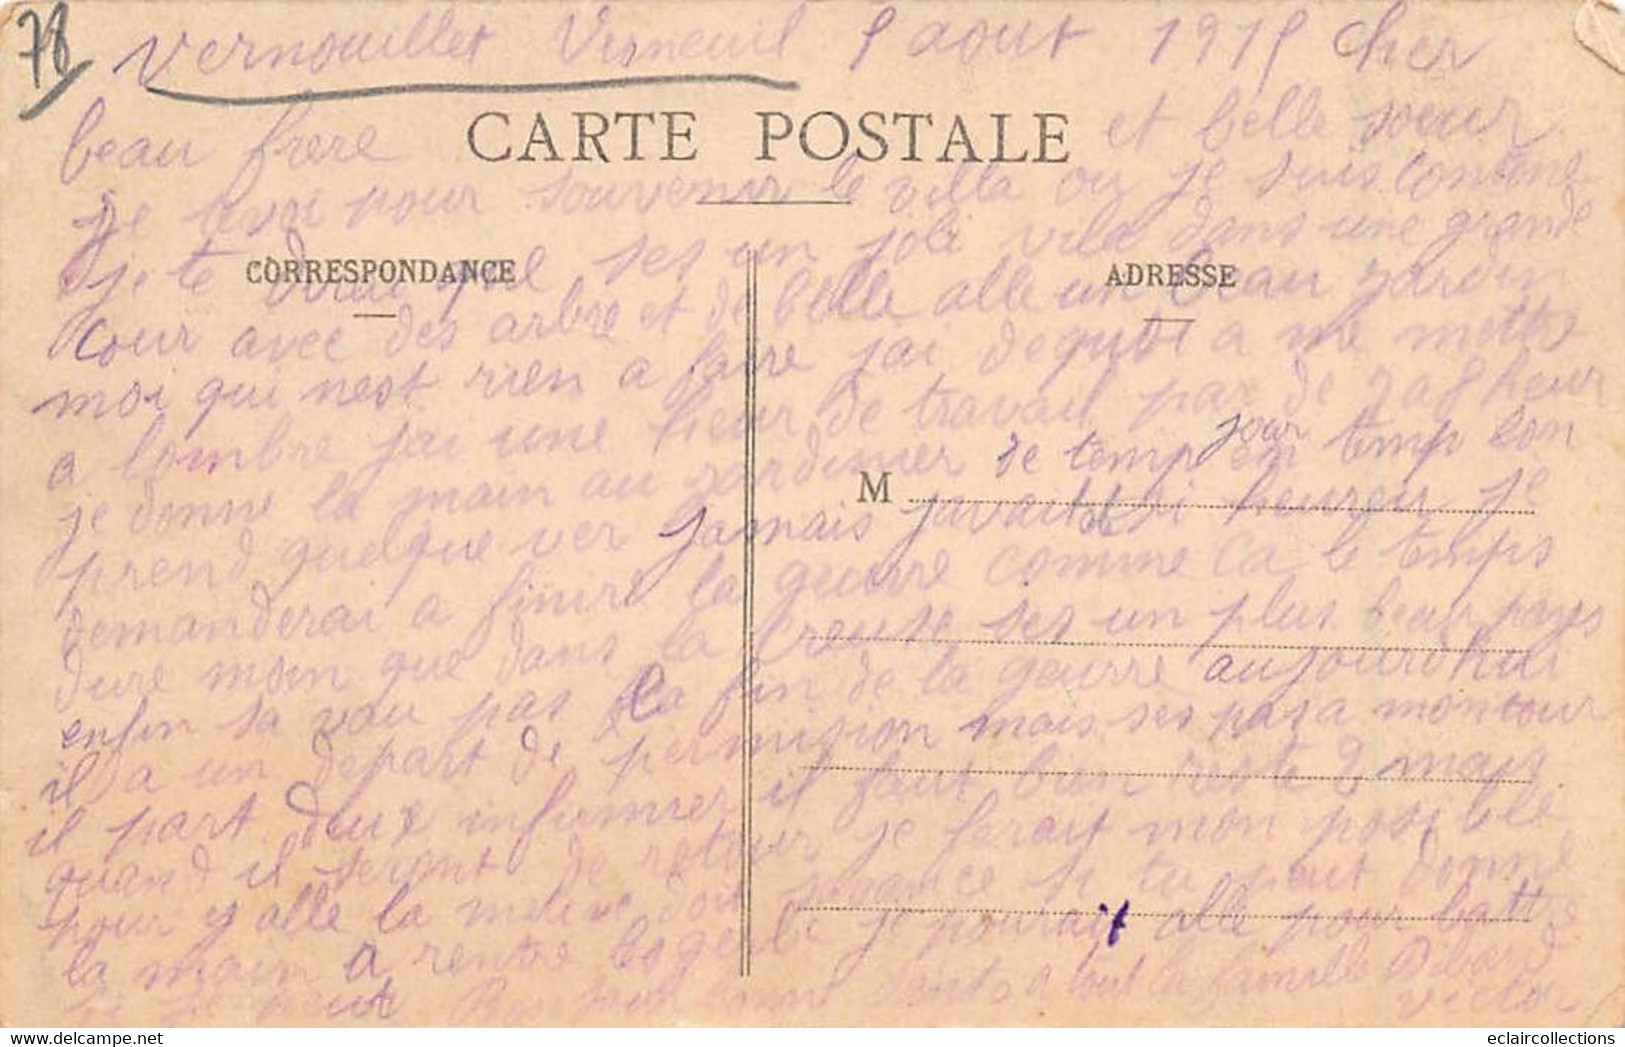 78
Vernouillet Verneuil 9 aout 1915 Cher
beau frere et belle sœur
CARTE POSTALE
je tevoi pour souvenir le villa ou je suis
je te dirai quel ses un joli vila dans une grande
CORRESPONDANCE
ADRESSE
cour avec des arbre et de belle alle un beau jardin
moi qui nest rien a faire jai dequoi a me mettre
a lombre jai une heur de travail par de 7 a 8 heur
jour
je donne la main au jardinier de temp en temp bon
M
prend quelque ver jamais javait si heureu je
demanderai a finire la geurre comme ca le temps
dure moin que dans la creuse ses un plus beau pays
enfin sa vau pas la fin de la geurre aujourdhui
il a un depart de permision mais ses pas a mon tour
il part deux infirmier il faut bien reste 2 mais
quand il seront de retour je ferait mon posible
pour y alle la doit savance si tu peut donne
la main a rentre los gerbe je pourait alle pour battre
si je peut donne a tout la famille
Victor
eclaircollections